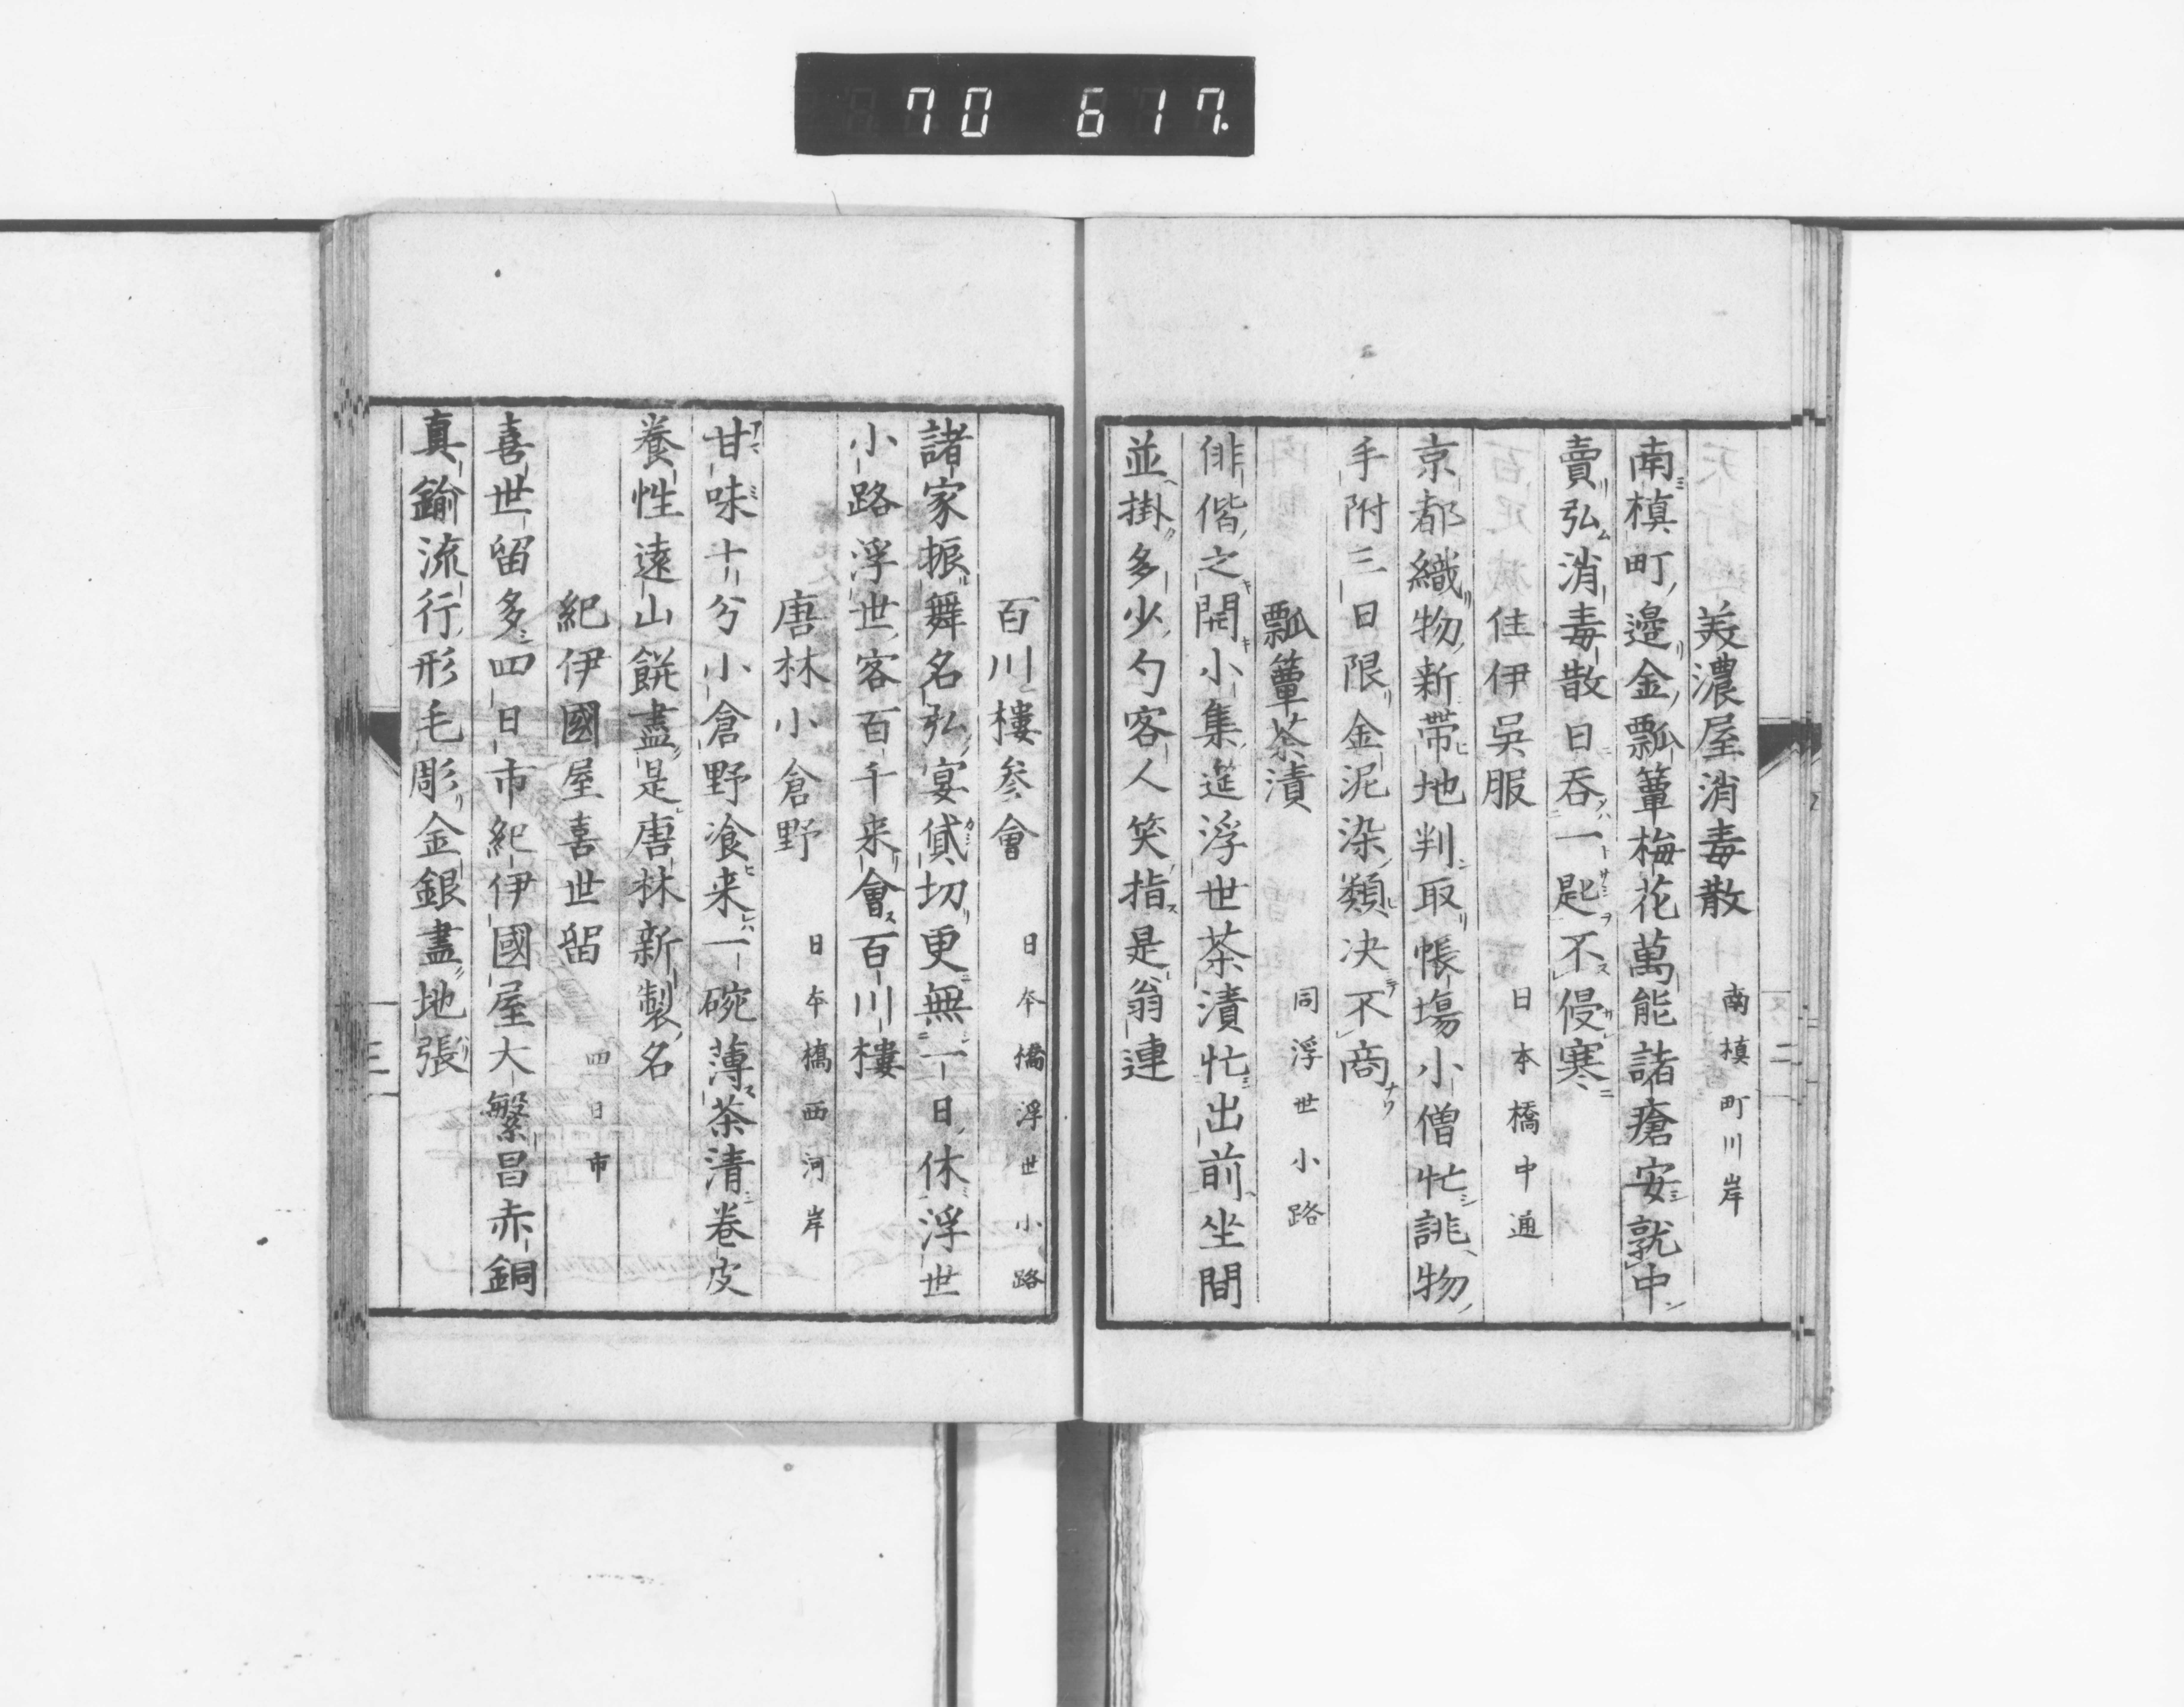 70 617.
美濃屋消毒散 南槇町川岸
南槇町邉金瓢簞梅花萬能諸瘡安就中
賣弘消毒散日吞一匙不侵寒
住伊吳服 日本橋中通
京都織物新帶地判取帳場小僧忙誂物
手附三日限金泥染類决不商
瓢簞茶漬 同浮世小路
俳偕之開小集筵浮世茶漬忙出前坐間
並掛多少勺客人笑指是翁連
二
百川樓参會 日本橋浮世小路
諸家振舞名弘宴貸切更無一日休浮世
小路浮世客百千来會百川樓
唐林小倉野 日本橋西河岸
甘味十分小倉野飡来一碗薄茶清卷皮
養性遠山餅盡是唐林新製名
紀伊國屋喜世留 四日市
喜世留多四日市紀伊國屋大繁昌赤銅
真鍮流行形毛彫金銀盡地張
三